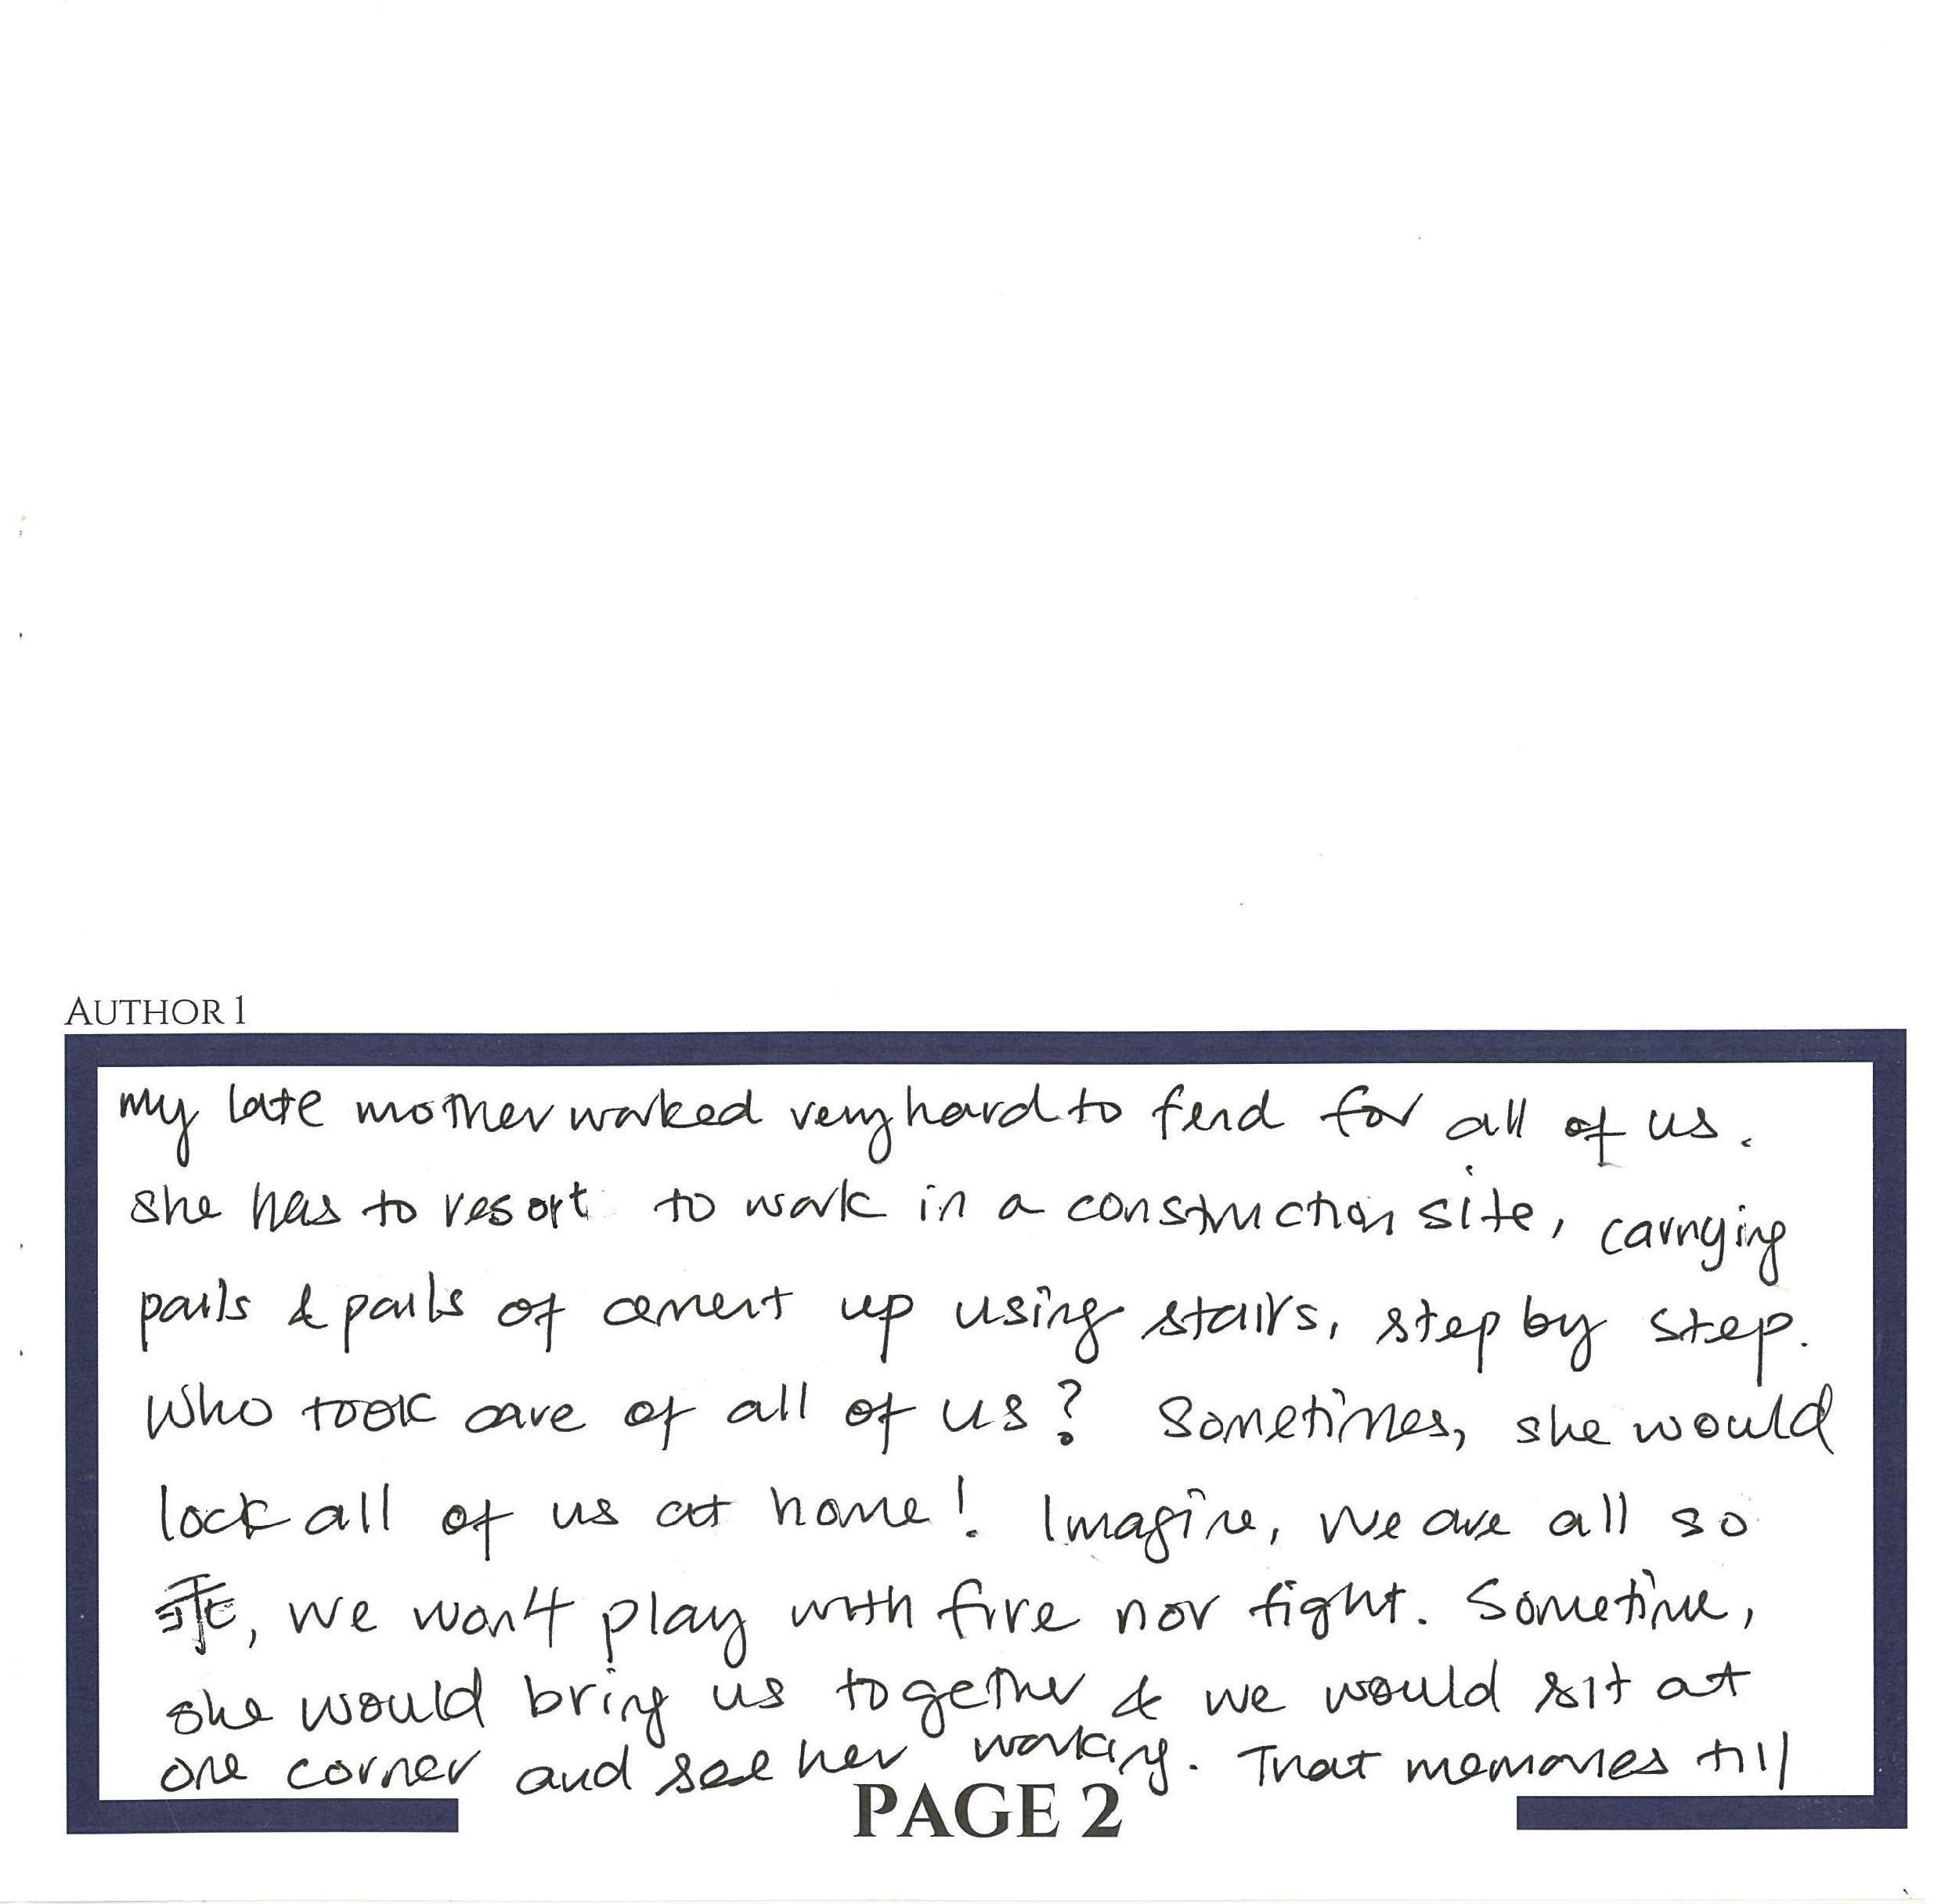 AUTHOR 1
my late mother worked very hard to fend for all of us.
she has to resort to work in a construction site, carrying
pails & pails of cement up using stairs, step by step.
Who took care of all of us? Sometimes, she would
lock all of us at home! Imagine, we are all so
乖, we won't play with fire nor fight. Sometime,
she would bring us together & we would sit at
one corner and see her working. That memories till
PAGE 2